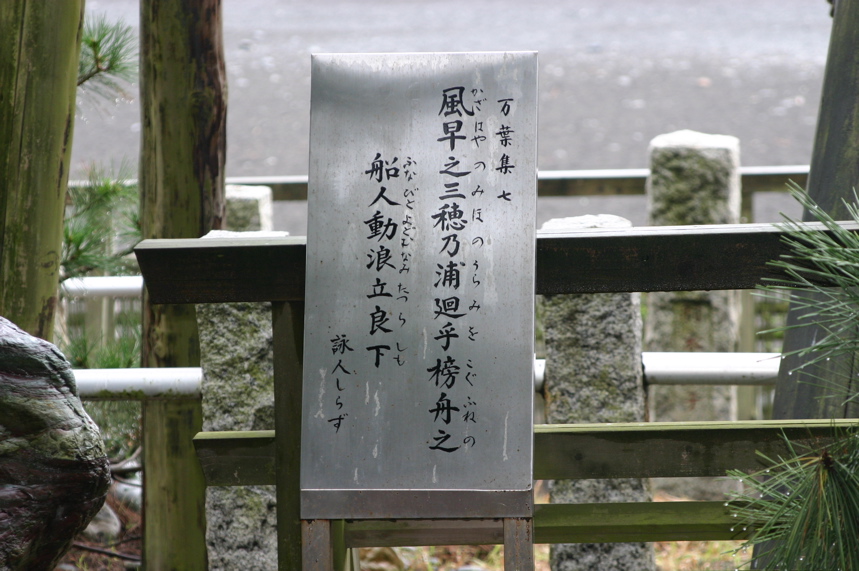 万葉集 七
かざ はや の み ほ の うら み を こぐ ふね の
風早之三穂乃浦廻乎榜舟之
ふな びと よどむ なみ たつ ら しも
船人動浪立良下
詠人しらず